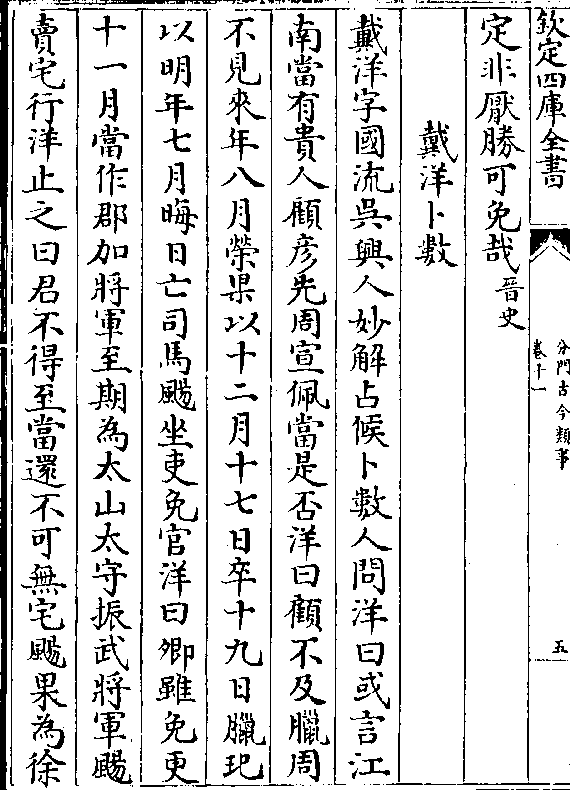 欽定四庫全書
分門古今類事
卷十一
五
定非厭勝可免哉晉史
戴洋卜數
戴洋字國流吳興人妙解占候卜數人問洋曰或言江
南當有貴人顧彦先周宣佩當是否洋曰顧不及臘周
不見來年八月榮果以十二月十七日卒十九日臘玘
以明年七月晦日亡司馬颺坐吏免官洋曰卿雖免更
十一月當作郡加將軍至期為太山太守振武將軍颺
賣宅行洋止之曰君不得至當還不可無宅颺果為徐